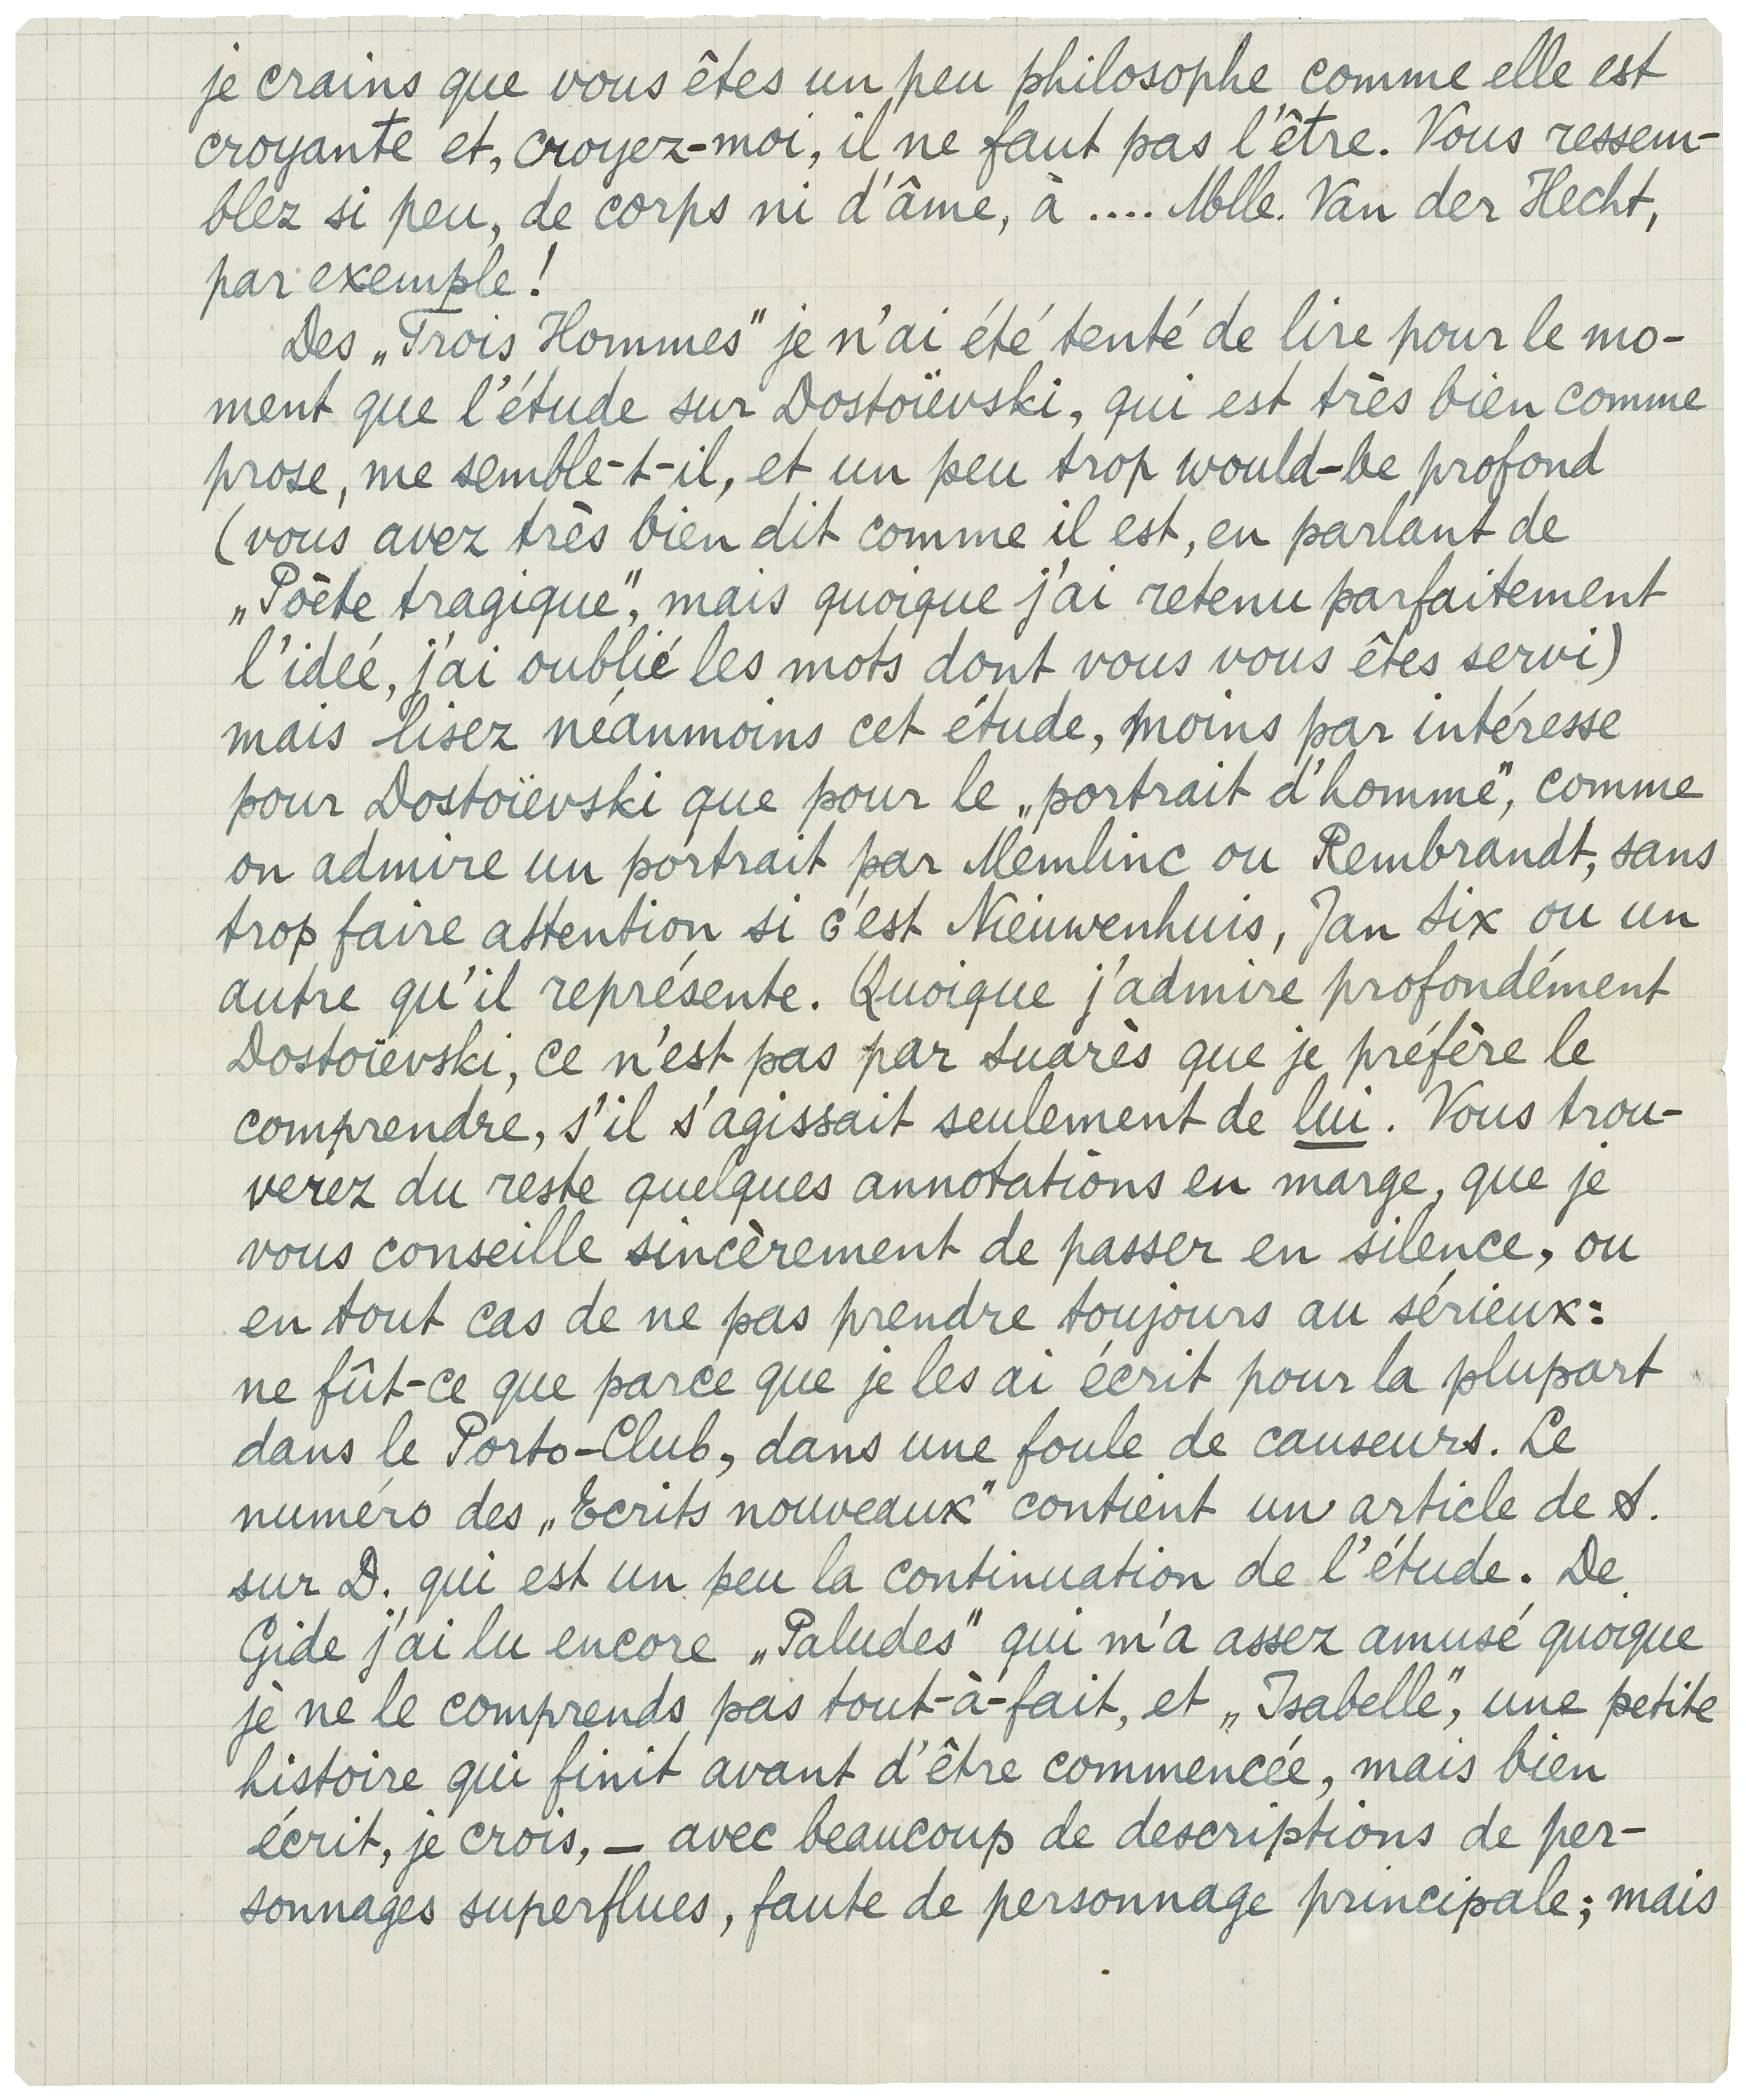 je crains que vous êtes un peu philosophe comme elle est
croyante et, croyez-moi, il ne faut pas l'être. Vous ressem-
blez si peu, de corps ni d'âme, à .... Mlle. Van der Hecht,
par exemple!
Des „Trois Hommes" je n'ai été tenté de lire pour le mo-
ment que l'étude sur Dostoïevski, qui est très bien comme
prose, me semble-t-il, et un peu trop would-be profond
(vous avez très bien dit comme il est, en parlant de
„Poète tragique", mais quoique j'ai retenu parfaitement
l'ideé, j'ai oublié les mots dont vous vous êtes servi)
mais lisez néanmoins cet étude, moins par intéresse
pour Dostoïevski que pour le „portrait d'homme", comme
on admire un portrait par Memlinc ou Rembrandt, sans
trop faire attention si c'est Nieuwenhuis, Jan Six ou un
autre qu'il représente. Quoique j'admire profondément
Dostoïevski, ce n'est pas par Suarès que je préfère le
comprendre, s'il s'agissait seulement de lui. Vous trou-
verez du reste quelques annotations en marge, que je
vous conseille sincèrement de passer en silence, ou
en tout cas de ne pas prendre toujours au sérieux:
ne fût-ce que parce que je les ai écrit pour la plupart
dans le Porto-Club, dans une foule de causeurs. Le
numéro des „Ecrits nouveaux" contient un article de S.
sur D. qui est un peu la continuation de l'étude. De
Gide j'ai lu encore „Paludes" qui m'a assez amusé quoique
je ne le comprends pas tout-à-fait, et „Isabelle", une petite
histoire qui finit avant d'être commencée, mais bien
écrit, je crois, — avec beaucoup de descriptions de per-
sonnages superflues, faute de personnage principale; mais